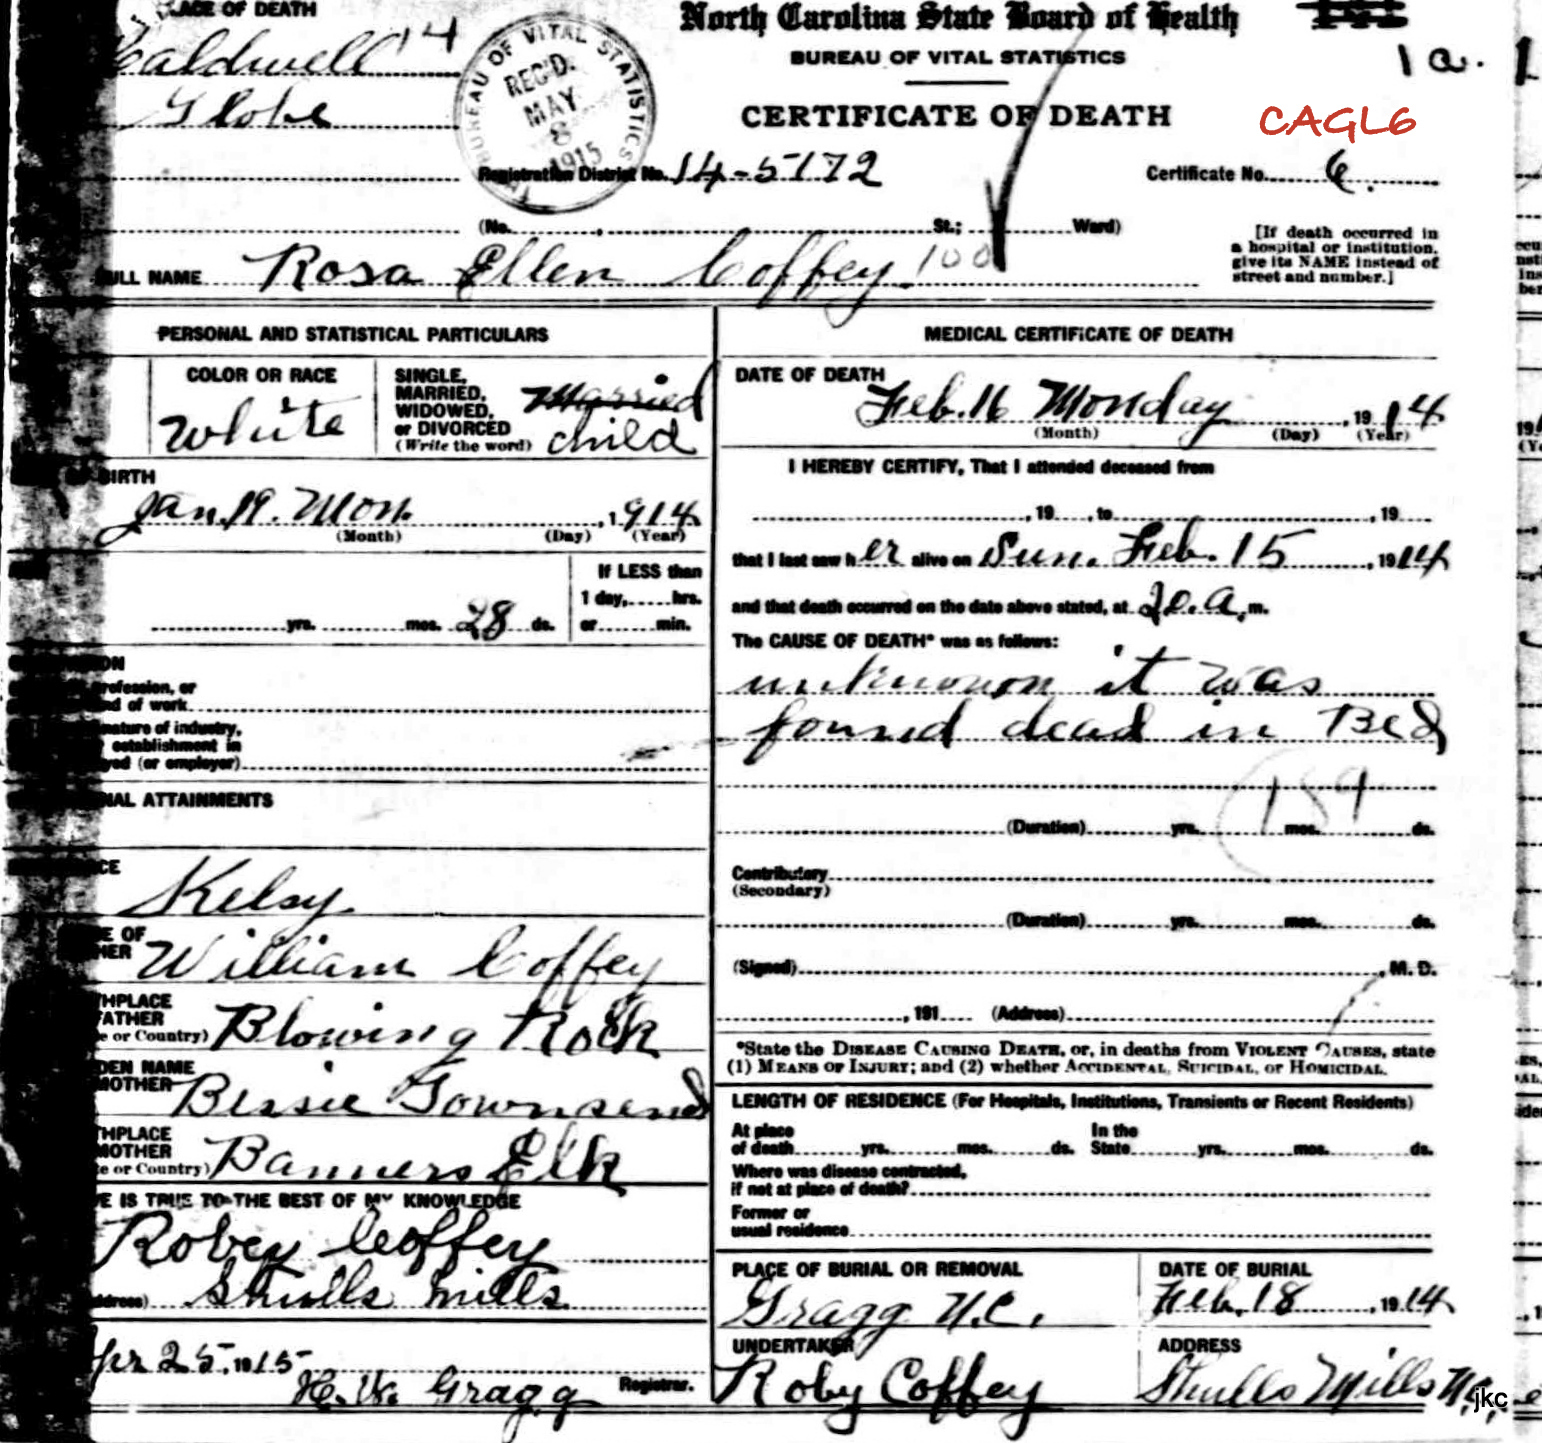 PLACE OF DEATH
North Carolina State Board of Health
Caldwell 14
BUREAU OF VITAL STATISTICS
1 a.
Globe
CERTIFICATE OF DEATH
CAGL6
BUREAU OF VITAL STATISTICS
REC'D.
MAY
8
1915
Registration District No. 14-5172
Certificate No. 6.
(No. , St.; Ward)
[If death occurred in
a hospital or institution,
give its NAME instead of
street and number.]
FULL NAME Rosa Ellen Coffey 100
PERSONAL AND STATISTICAL PARTICULARS
COLOR OR RACE
White
SINGLE,
MARRIED,
WIDOWED,
or DIVORCED
(Write the word)
Married
child
OF BIRTH
Jan. 19. Mon. , 1914
(Month) (Day) (Year)
If LESS than
1 day, hrs.
or min.
yrs. mos. 28 ds.
ON
rofession, or
nd of work
nature of industry,
establishment in
yed (or employer)
NAL ATTAINMENTS
CE
Kelsy
E OF
HER William Coffey
THPLACE
FATHER
e or Country) Blowing Rock
DEN NAME
MOTHER Bessie Townsend
THPLACE
MOTHER
e or Country) Banners Elk
E IS TRUE TO THE BEST OF MY KNOWLEDGE
Robey Coffey
ddress) Shulls Mills
Apr 25, 1915
H. W. Gragg Registrar.
MEDICAL CERTIFICATE OF DEATH
DATE OF DEATH
Feb. 16 Monday , 1914
(Month) (Day) (Year)
I HEREBY CERTIFY, That I attended deceased from
, 19 , to , 19
that I last saw her alive on Sun. Feb. 15 , 1914
and that death occurred on the date above stated, at a. m.
The CAUSE OF DEATH* was as follows:
unknown it was
found dead in Bed
189
(Duration) yrs. mos. ds.
Contributory
(Secondary)
(Duration) yrs. mos. ds.
(Signed) , M. D.
, 191 (Address)
*State the DISEASE CAUSING DEATH, or, in deaths from VIOLENT CAUSES, state
(1) MEANS OF INJURY; and (2) whether ACCIDENTAL, SUICIDAL, or HOMICIDAL.
LENGTH OF RESIDENCE (For Hospitals, Institutions, Transients or Recent Residents)
At place
of death yrs. mos. ds.
In the
State yrs. mos. ds.
Where was disease contracted,
if not at place of death?
Former or
usual residence
PLACE OF BURIAL OR REMOVAL
Gragg N.C.
DATE OF BURIAL
Feb. 18 , 1914
UNDERTAKER
Roby Coffey
ADDRESS
Shulls Mills N.C.
jkc